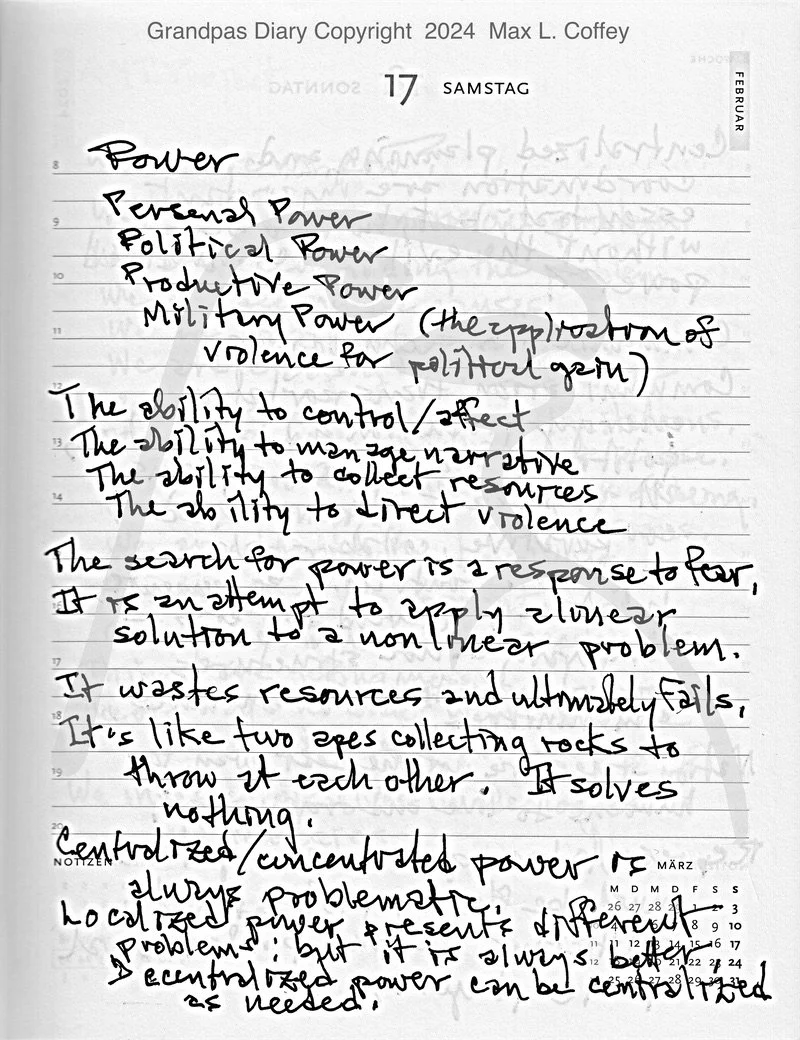 Grandpas Diary Copyright 2024 Max L. Coffey
17 SAMSTAG
FEBRUAR
8
Power
9
Personal Power
Political Power
10
Productive Power
Military Power (the application of
11
violence for political gain)
12
The ability to control/affect
13
The ability to manage narrative
The ability to collect resources
14
The ability to direct violence
The search for power is a response to fear,
It is an attempt to apply a linear
solution to a nonlinear problem.
17
It wastes resources and ultimately fails,
18
It's like two apes collecting rocks to
19
throw at each other. It solves
nothing.
20
Centralized/concentrated power is
NOTIZEN
MÄRZ
always problematic.
M D M D F S S
Localized power presents different
problems; but it is always better,
Decentralized power can be centralized
as needed.